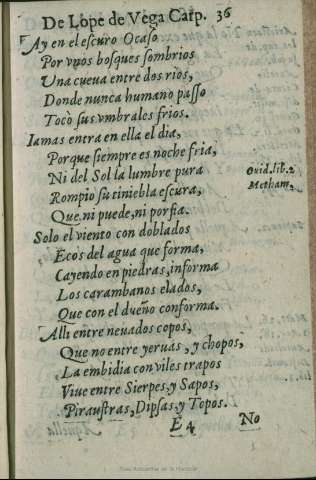 De Lope de Vega Carp. 36
Ay en el eſcuro Ocaſo
Por vnos boſques ſombrios
Vna cueua entre dos rios,
Donde nunca humano paſſo
Toco ſus vmbrales frios.
Iamas entra en ella el dia,
Porque ſiempre es noche fria,
Ni del Sol la lumbre pura
Ouid. lib. 2
Metham.
Rompio ſu tiniebla eſcura,
Que ni puede, ni porfia.
Solo el viento con doblados
Ecos del agua que forma,
Cayendo en piedras, informa
Los carambanos elados,
Que con el dueño conforma.
Alli entre neuados copos,
Que no entre yeruas, y chopos,
La embidia con viles trapos
Viue entre Sierpes, y Sapos,
Pirauſtras, Dipſas, y Topos.
E 4 No